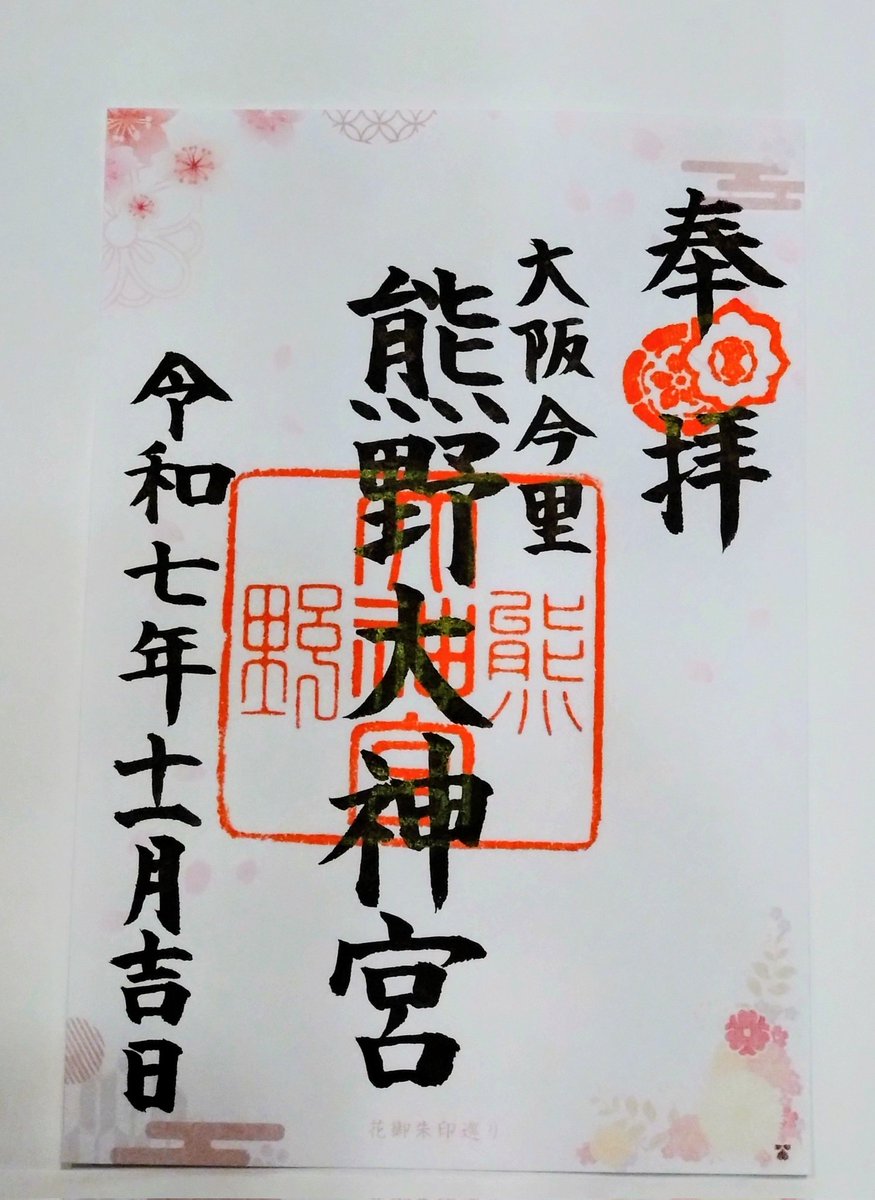 奉拝
大阪今里
熊野大神宮
令和七年十一月吉日
熊
大神宮
野
花御朱印巡り